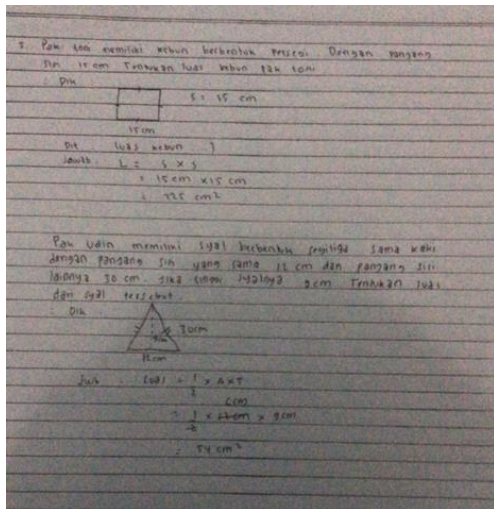 5. Pak toni memiliki kebun berbentuk persegi. Dengan panjang
sisi 15 cm Tentukan luas kebun pak toni
: Dik
s = 15 cm
15 cm
Dit luas kebun ?
Jawab : L = s x s
= 15 cm x 15 cm
= 225 cm²
Pak Udin memiliki syal berbentuk segitiga sama kaki
dengan panjang sisi yang sama 12 cm dan panjang sisi
lainnya 30 cm. Jika tinggi syalnya 9 cm Tentukan luas
dan syal tersebut.
: Dik
30cm
9cm
12cm
Jwb : Luas = 1/2 x A x T
6cm
= 1/2 x 12cm x 9cm
: 54 cm²